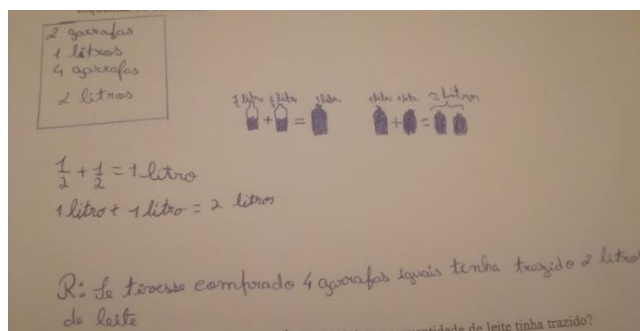 2 garrafas
1 litros
4 garrafas
2 litros
1/2 litro 1/2 litro 1 litro 1 litro 1 litro 2 litros
+ = + =
1/2 + 1/2 = 1 litro
1 litro + 1 litro = 2 litros
R: Se tivesse comprado 4 garrafas iguais tenha trazido 2 litros
de leite
quantidade de leite tinha trazido?